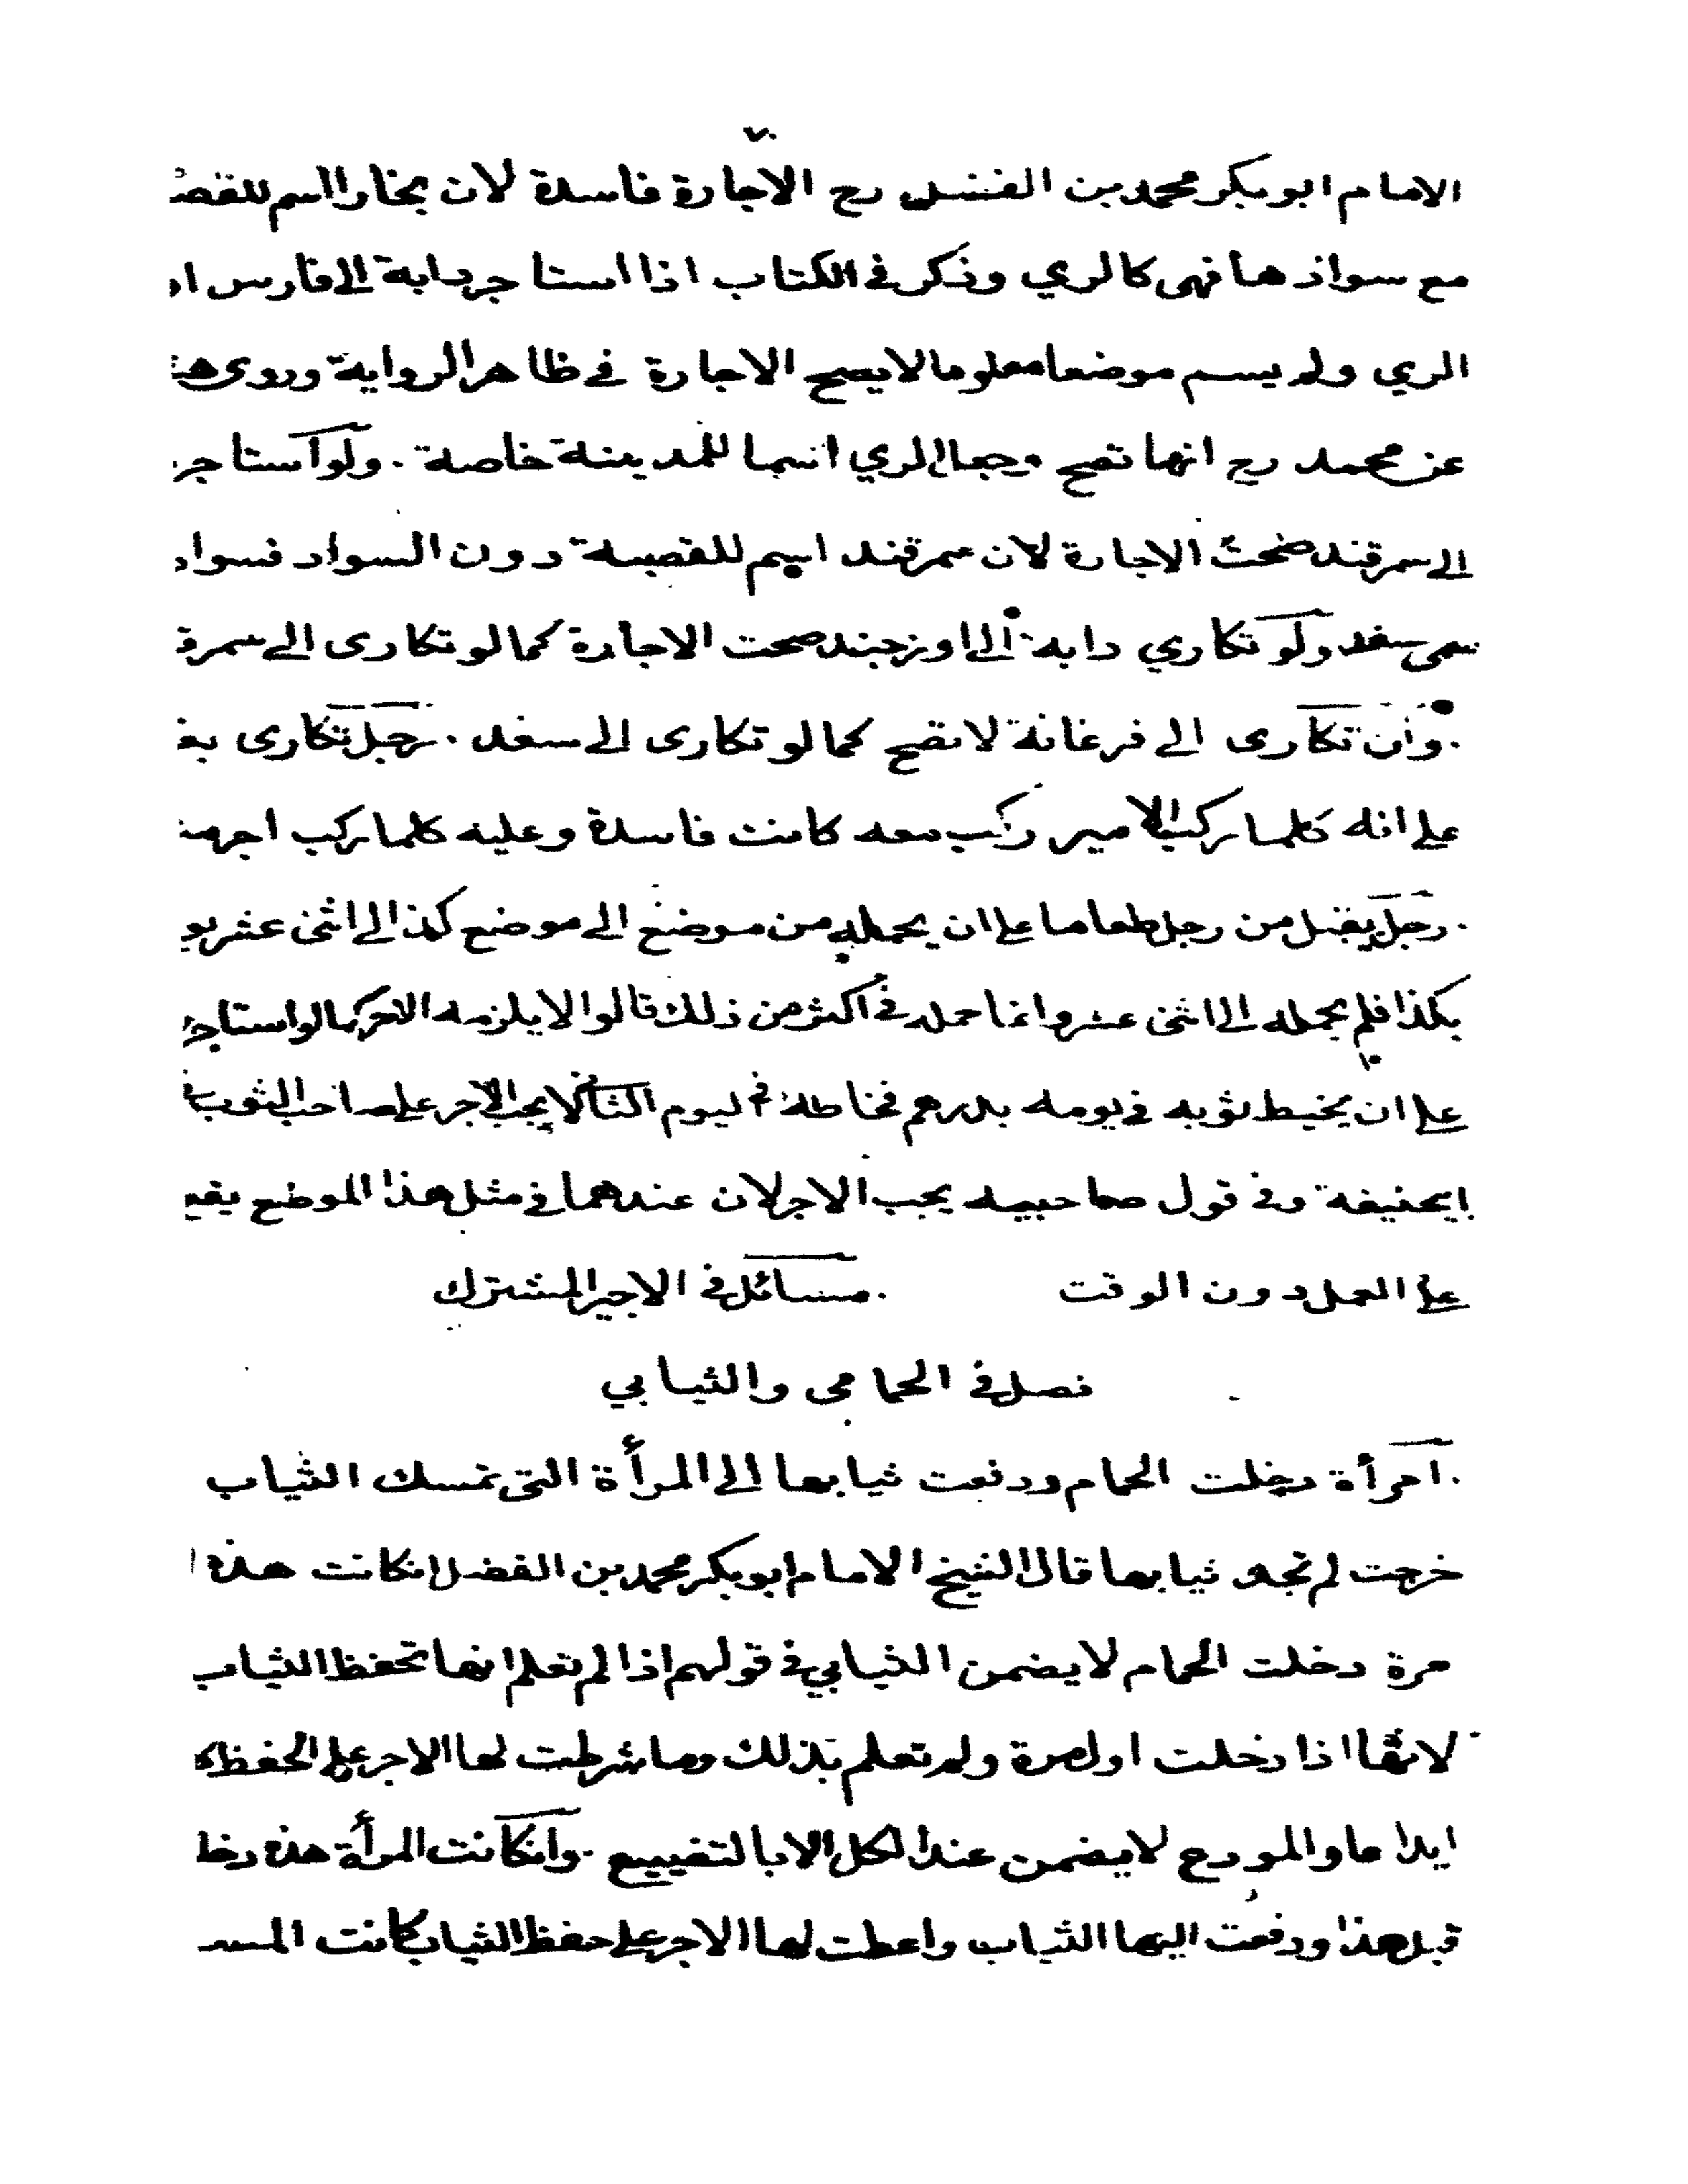 الامام ابوبكر محمد بن الفضل رح الاجارة فاسدة لان بخارا اسم للقصـ
مع سوادها فهى كالري وذكر فى الكتاب اذا استاجر دابة الى فارس او
الري ولم يسم موضعا معلوما لا يصح الاجارة فى ظاهر الرواية وروى هـ
عن محمد رح انها تصح وجعل الري اسما للمدينة خاصة . ولو استاجر
الى سمرقند صحت الاجارة لان سمرقند اسم للقصبة دون السواد فسواد
سمى سغد ولو تكاري دابه الى اوزجند صحت الاجارة كما لو تكارى الى سمرقـ
. وان تكارى الى فرغانة لا تصح كما لو تكارى الى سغد . رجل تكارى بغـ
على انه كلما ركب الامير ركب معه كانت فاسدة وعليه كلما ركب اجر مـ
. رجل يقبل من رجل طعاما على ان يحمله من موضع الى موضع كذا الى اثنى عشر يو
بكذا فلم يحمله الى اثنى عشر وانما حمله فى اكثر من ذلك قالوا لا يلزمه الاجر كما لو استاجر
على ان يخيط ثوبه فى يومه بدرهم فخاطه فى اليوم الثانى لا يجب الاجر على صاحب الثوب
ابيحنيفة وفى قول صاحبيه يجب الاجر لان عندهما فى مثل هذا الموضع يقع
على العمل دون الوقت . مسائل فى الاجير المشترك
فصل فى الحمامى والثيابي
. امرأة دخلت الحمام ودفعت ثيابها الى المرأة التى تمسك الثياب
خرجت لم تجد ثيابها قال الشيخ الامام ابوبكر محمد بن الفضل انكانت هذه ا
مرة دخلت الحمام لا يضمن الثيابي فى قولهم اذا لم تعلم انها تحفظ الثياب
لانها اذا دخلت اول مرة ولم تعلم بذلك وما شرطت لها الاجر على الحفظ كا
ايداعا والمودع لا يضمن عند الكل الا بالتضييع . وانكانت المرأة هذه دخلـ
قبل هذا ودفعت اليها الثياب واعطت لها الاجر على حفظ الثياب كانت المسـ